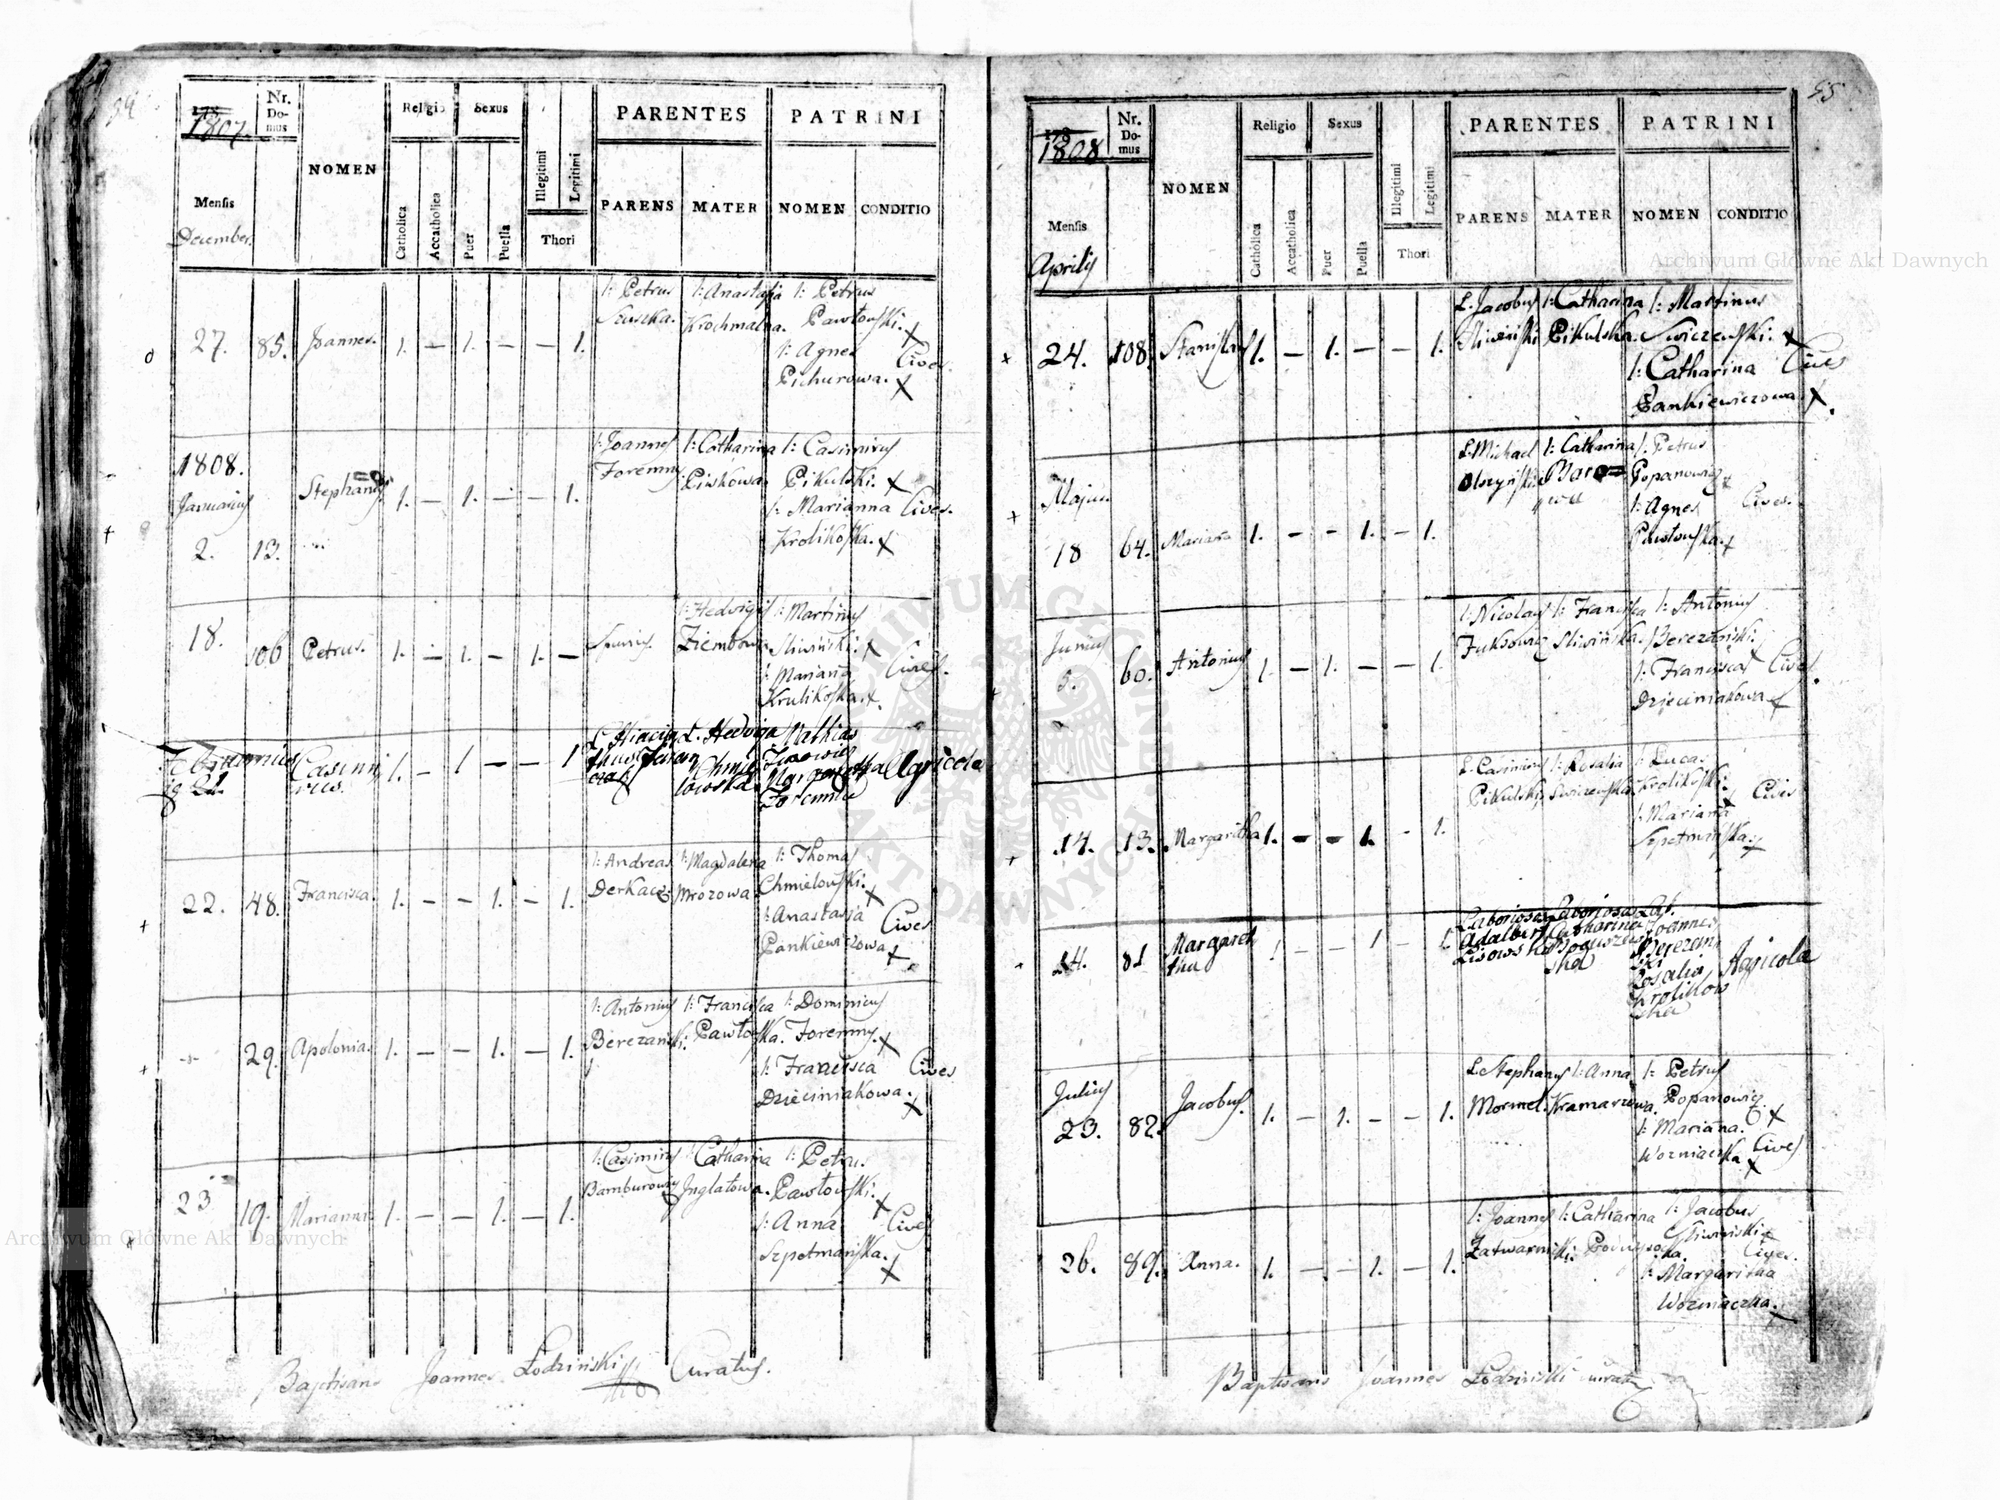 34
1807.
Nr. Domus
NOMEN
Religio
Sexus
PARENTES
PATRINI
Mensis
December.
Catholica
Accatholica
Puer
Puella
Illegitimi
Legitimi
Thori
PARENS
MATER
NOMEN
CONDITIO
27. 85. Joannes. 1. — 1. — — 1.
l: Petrus
Szuszka.
l: Anastasia
Krochmalna.
l: Petrus
Pawłowski. X
l: Agnes
Pichurowa. X
Cives
1808.
Januarius
2. 13. Stephanus 1. — 1. — — 1.
l: Joannes
Foremny
l: Catharina
Piwkowa
l: Casimirus
Pikulski. X
l: Marianna
Krolikoska. X
Cives.
18. 106 Petrus. 1. — 1. — 1. —
Spurius.
l: Hedvigis
Ziembowi
l: Martinus
Sliwiński. X
l: Mariana
Krulikoska. X.
Cives.
Februarius
21. Casimirus. 1. — 1 — — 1
L. Hedviga
Chmielowska
Mathias
Margaretha
Agricola
22. 48. Francisca. 1. — — 1. — 1.
l: Andreas
Derkacz
l: Magdalena
Mrozowa.
l: Thomas
Chmielowski. X
l: Anastasia
Pankiewiczowa X
Cives
29. Apolonia. 1. — — 1. — 1.
l: Antonius
Berezański.
l: Francisca
Pawłoska.
l: Dominicus
Foremny. X
l: Francisca
Dzieciniakowa. X
Cives
23 19. Marianna 1. — — 1. — 1.
l: Casimirus
Bamburowicz
l: Catharina
Jnglatowa.
l: Petrus
Pawłowski. X
l: Anna
Szpetmańska. X
Cives
Baptisans Joannes Łodziński Curatus.
35
1808
Nr. Domus
NOMEN
Religio
Sexus
PARENTES
PATRINI
Mensis
Aprilis
Catholica
Accatholica
Puer
Puella
Illegitimi
Legitimi
Thori
PARENS
MATER
NOMEN
CONDITIO
24. 108. Stanislaus 1. — 1. — — 1.
L. Jacobus
Sliwiński
l: Catharina
Pikulska.
l: Martinus
Swiczewski. X
l: Catharina
Pankiewiczowa X.
Cives
Majus
18 64. Mariana 1. — — 1. — 1.
L: Michael
Olszyński
l: Catharina
l: Petrus
Popanowicz X
l: Agnes
Pawłowska. X
Cives.
Junius
5. 60. Antonius 1. — 1. — — 1.
l: Nicolaus
Fuksowicz
l: Francisca
Sliwińska.
l: Antonius
Berezański.
l: Francisca
Dzieciniakowa X
Cives.
14. 13. Margaritha 1. — — 1. — 1.
L. Casimirus
Pikulski
l: Rosalia
Swiczewska.
l: Lucas
Krolikoski.
l: Mariana
Szpetmańska. X
Cives
14. 81 Margaretha 1 — — 1 — 1.
Laboriosus
Adalbert
Lisowski
Laboriosa
Catharina
Boguszewska
Lab.
Joannes
Berezański
Rosalia
Krolikowska
Agricola
Julius
23. 82. Jacobus. 1. — 1. — — 1.
L. Stephanus
Mormel.
l: Anna
Kramarzowa.
l: Petrus
Popanowicz X
l: Mariana.
Wozniaczka X
Cives
26. 89. Anna. 1. — — 1. — 1.
l: Joannes
Zatwarnicki.
l: Catharina
l: Jacobus
Sliwiński X
l: Margaritha
Wozniaczka. X
Cives.
Baptisans Joannes Łodziński curatus
Archiwum Główne Akt Dawnych
Archiwum Główne Akt Dawnych
ARCHIWUM GŁÓWNE AKT DAWNYCH